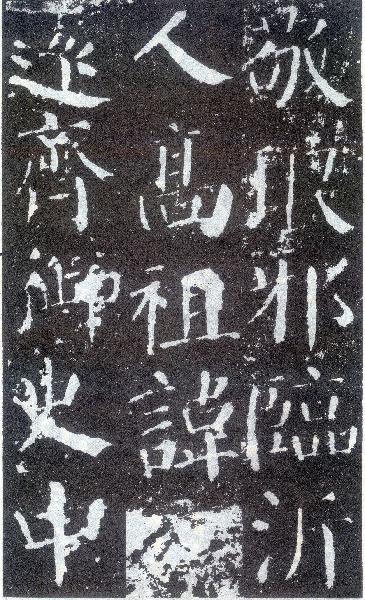 敬琅邪臨沂
人髙祖諱
遠齊御史中